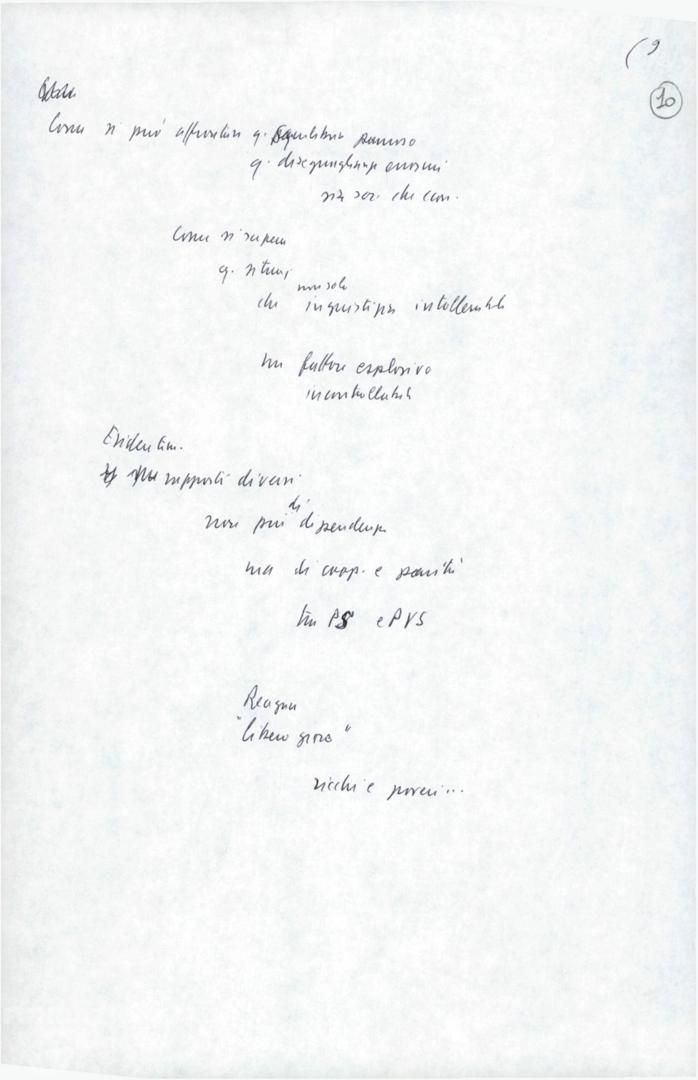 (9
10
Come si può affrontare q. squilibrio pauroso
q. diseguaglianze enormi
sia soc. che
Come si supera
q. situaz
non solo
che ingiustizia intollerabile
un fattore esplosivo
incontrollabile
Evidentem.
rapporti diversi
di
non più dipendenza
ma di coop. e parità
tra PS e PVS
Reagan
"libero gioco"
ricchi e poveri...